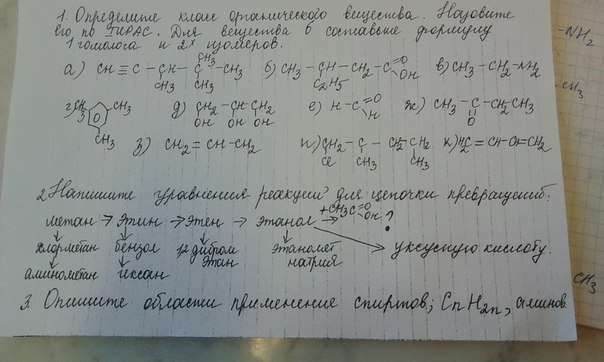 1. Определите класс органического вещества. Назовите
его по IUPAC. Для вещества б составьте формулу
1 гомолога и 2х изомеров.
CH3
а) CH ≡ C – CH – C – CH3 б) CH3 – CH – CH2 – C O OH в) CH3 – CH2 – NH2
CH3 CH3 C2H5
г) CH3 CH3 д) CH2 – CH – CH2 е) H – C O H ж) CH3 – C – CH2 CH3
CH3 OH OH OH O
з) CH2 = CH – CH2 и) CH2 – C – CH2 CH2 к) H2C = CH – CH = CH2
Cl CH3 CH3
2. Напишите уравнения реакций для цепочки превращений:
метан → Этин → Этен → Этанол +CH3C O OH → ?
хлорметан бензол 1,2 дибром этан Этаномет натрия уксусную кислоту.
аминометан гексан
3. Опишите области применение спиртов; CnH2n, аминов
–NH2
CH3
CH3